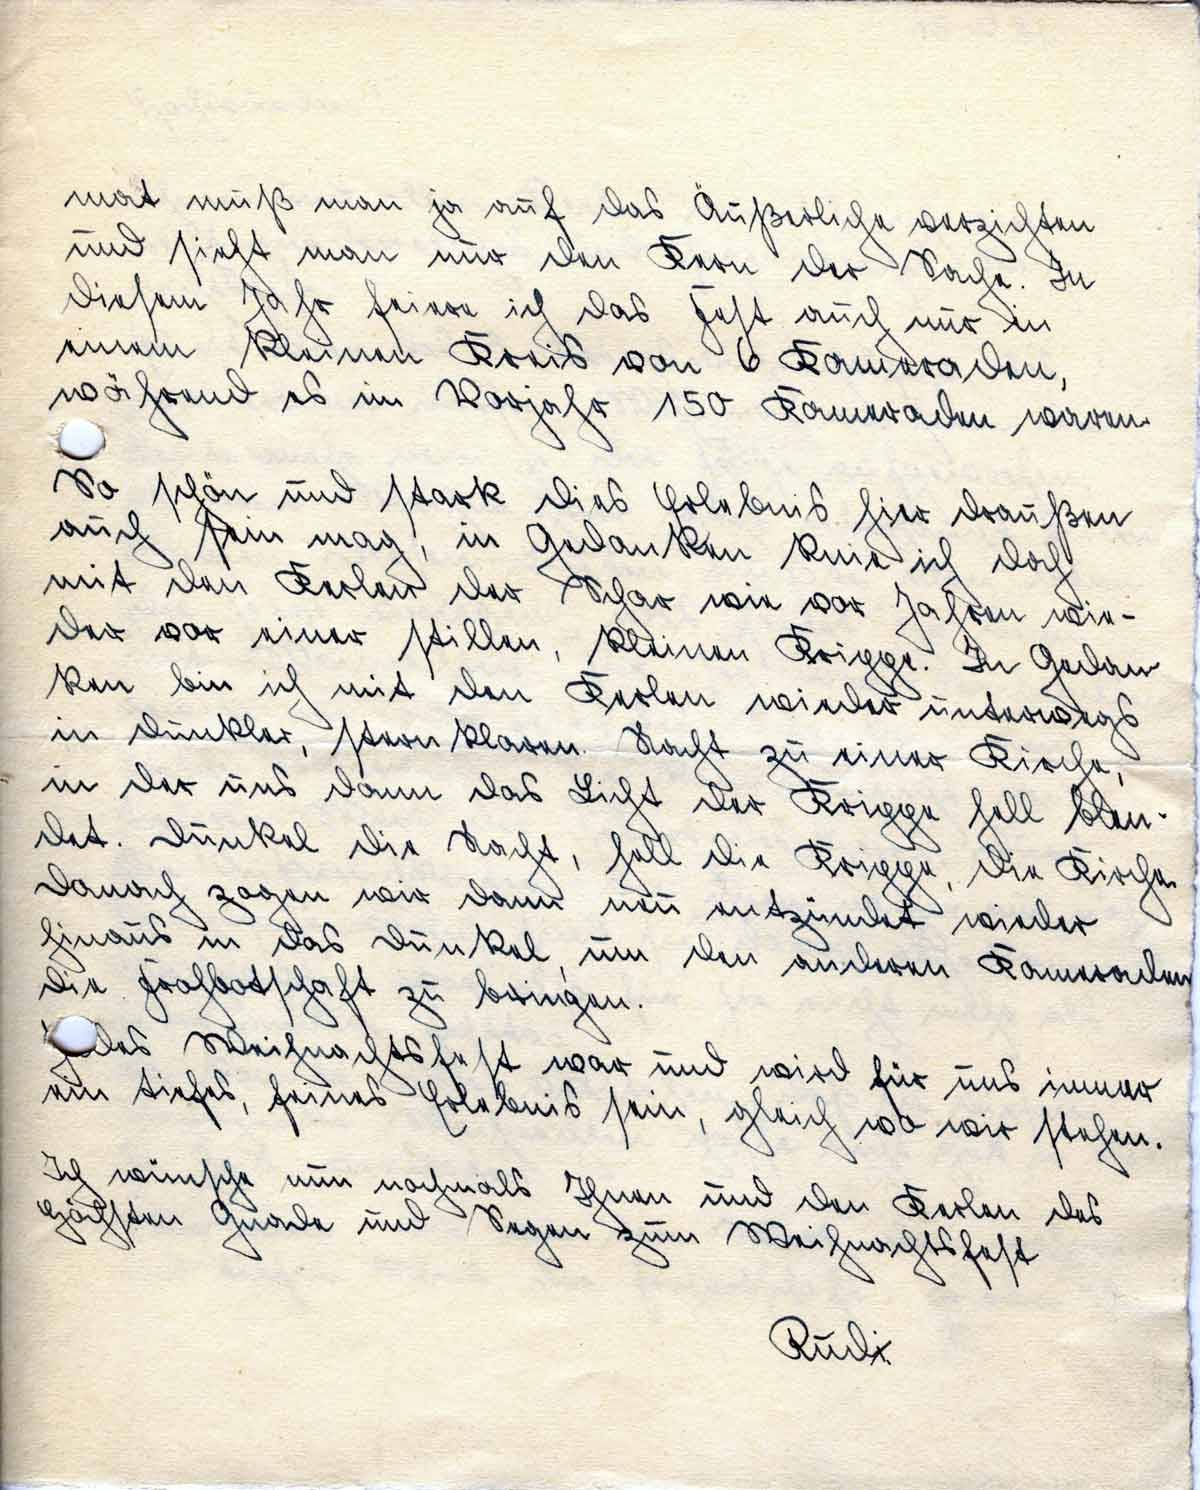 mat muß man ja auf das Äußerliche verzichten
und sieht man nur den Kern der Sache. In
diesem Jahr feiere ich das Fest auch nur in
einem kleinen Kreis von 6 Kameraden,
während es im Vorjahr 150 Kameraden waren.
So schön und stark dies Erlebnis hier draußen
auch sein mag, in Gedanken knie ich doch
mit den Kerlen der Schar wie vor Jahren wie-
der vor einer stillen, kleinen Krippe. In Gedan-
ken bin ich mit den Kerlen wieder unterwegs
in dunkler, sternklaren Nacht zu einer Kirche,
in der uns dann das Licht der Krippe hell blen-
det. Dunkel die Nacht, hell die Krippe, die Kirche.
Danach zogen wir dann neu entzündet wieder
hinaus in das Dunkel, um den anderen Kameraden
die Frohbotschaft zu bringen.
Jedes Weihnachtsfest war und wird für uns immer
ein tiefes, feines Erlebnis sein, gleich wo wir stehen.
Ich wünsche nun nochmals Ihnen und den Kerlen des
Höchsten Gnade und Segen zum Weihnachtsfest
Rudi